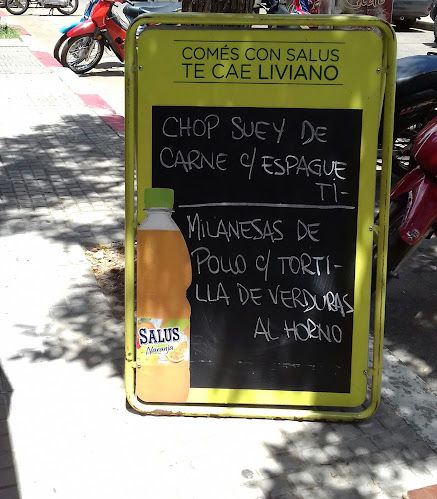 COMÉS CON SALUS
TE CAE LIVIANO
CHOP SUEY DE
CARNE C/ESPAGUE
TI-
MILANESAS DE
POLLO C/ TORTI-
LLA DE VERDURAS
AL HORNO
SALUS
Naranja